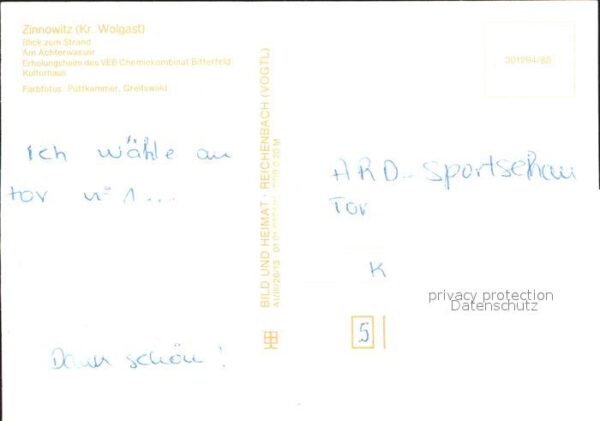 Zinnowitz (Kr. Wolgast)
Blick zum Strand
Am Achterwasser
Erholungsheim des VEB Chemiekombinat Bitterfeld
Kulturhaus
Farbfotos: Puttkammer, Greifswald
301294/88
Ich wähle an
tor n° 1...
Dank schön!
BILD UND HEIMAT · REICHENBACH (VOGTL)
A1/III/26/13
ARD-Sportschau
Tor
K
5
privacy protection
Datenschutz